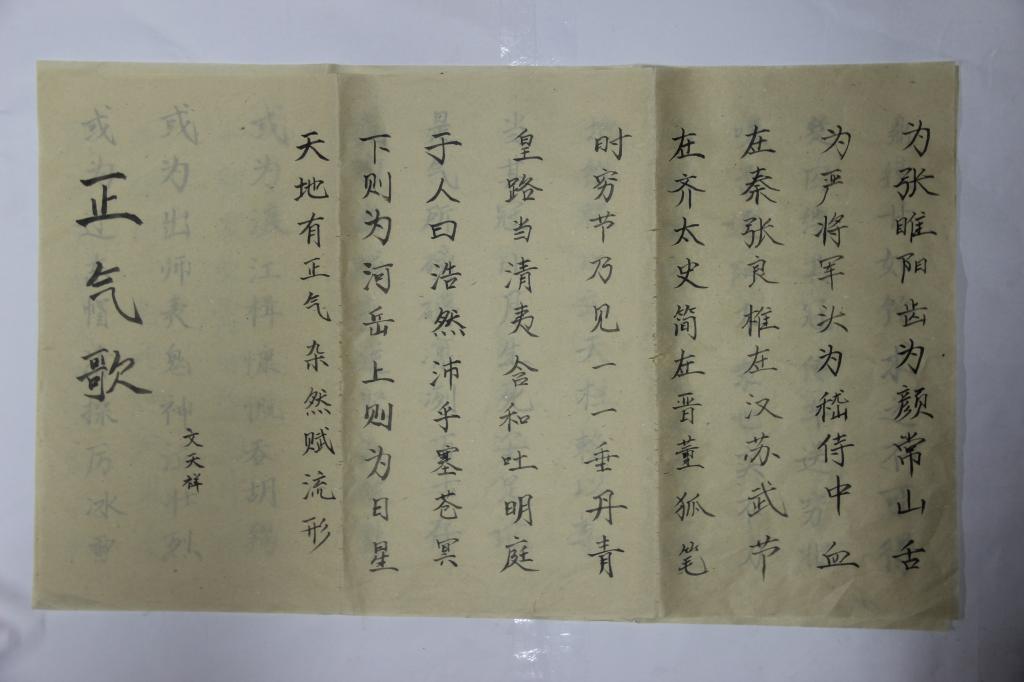 正气歌
文天祥
天地有正气 杂然赋流形
下则为河岳上则为日星
于人曰浩然沛乎塞苍冥
皇路当清夷含和吐明庭
时穷节乃见一一垂丹青
在齐太史简在晋董狐笔
在秦张良椎在汉苏武节
为严将军头为嵇侍中血
为张睢阳齿为颜常山舌